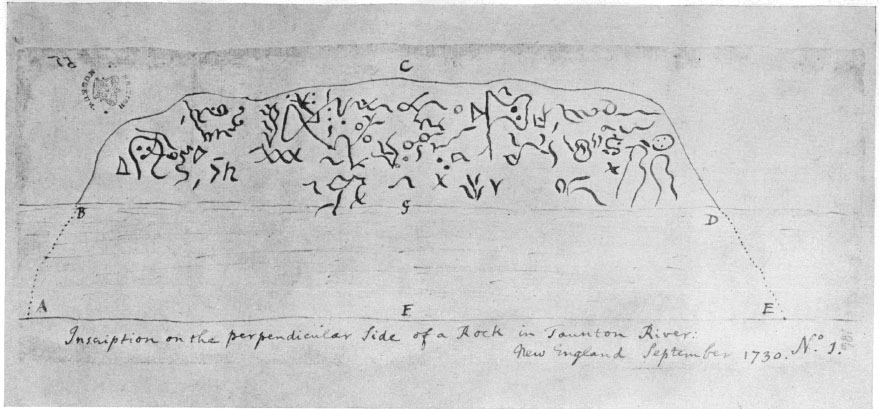 C
B
G
D
A
F
E
Inscription on the perpendicular Side of a Rock in Taunton River:
New England September 1730. No. 1.